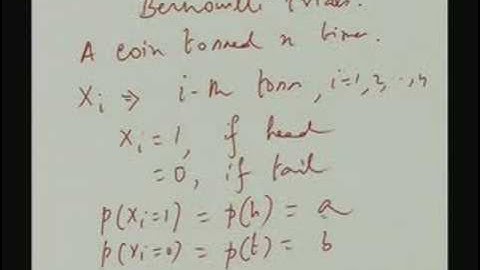 Bernoulli Trials.
A coin tossed n times.
Xi ⇒ i-th toss, i=1, 2, .., n
Xi = 1, if head
= 0, if tail
p(Xi=1) = p(h) = a
p(Xi=0) = p(t) = b